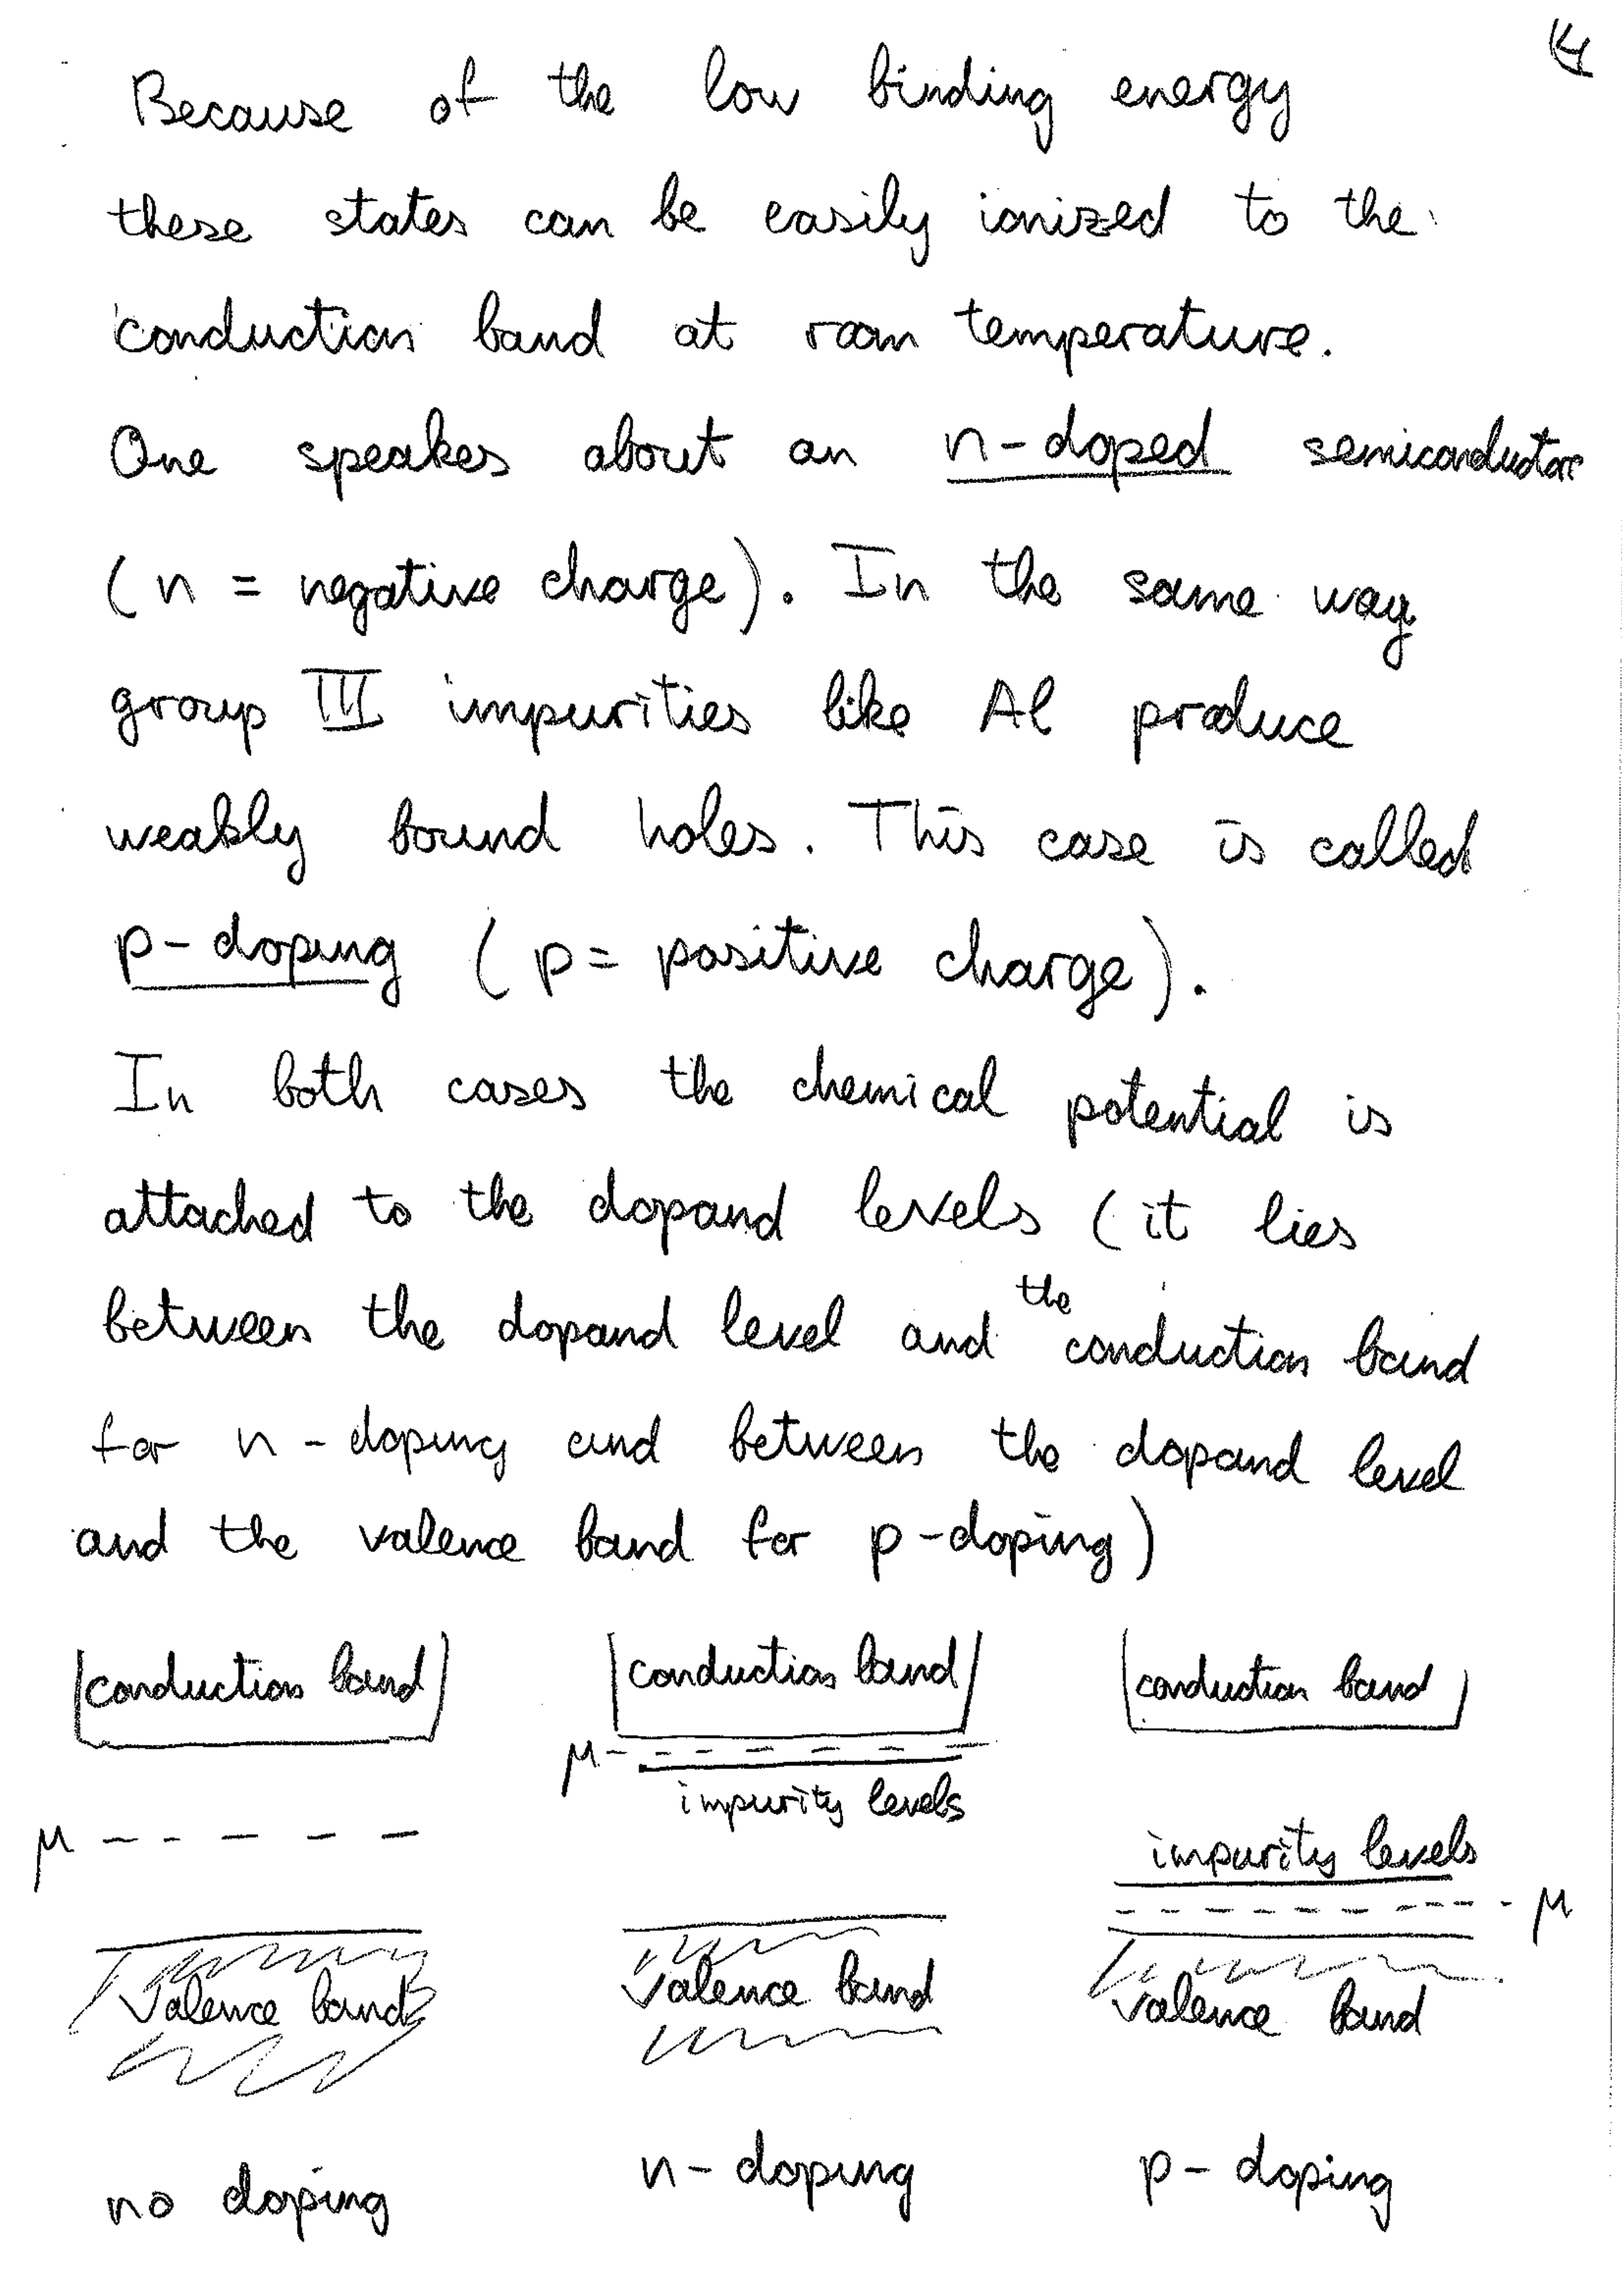 Because of the low binding energy
these states can be easily ionized to the
conduction band at room temperature.
One speakes about an n-doped semiconductors
(n = negative charge). In the same way
group III impurities like Al produce
weakly bound holes. This case is called
p-doping (p = positive charge).
In both cases the chemical potential is
attached to the dopand levels (it lies
between the dopand level and the conduction band
for n-doping and between the dopand level
and the valence band for p-doping)
conduction band conduction band conduction band
μ
impurity levels
μ
impurity levels
μ
Valence band Valence band Valence band
no doping n-doping p-doping